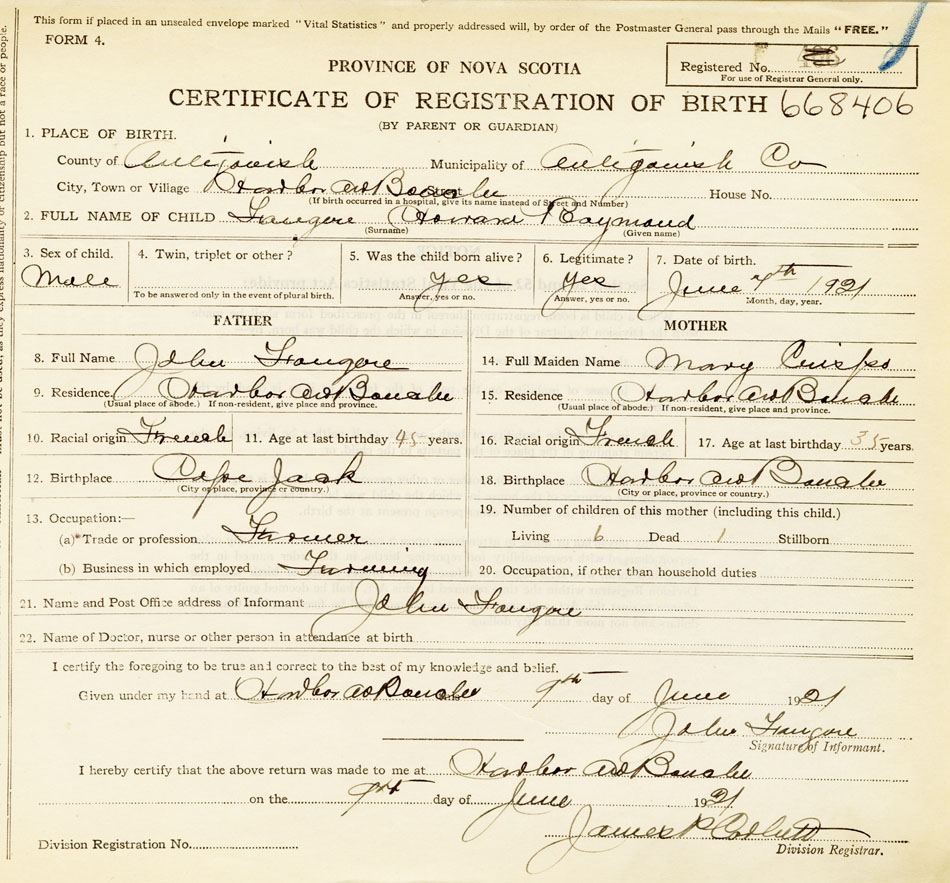 This form if placed in an unsealed envelope marked "Vital Statistics" and properly addressed will, by order of the Postmaster General pass through the Mails "FREE."
FORM 4.
Registered No.
For use of Registrar General only.
PROVINCE OF NOVA SCOTIA
CERTIFICATE OF REGISTRATION OF BIRTH 668406
(BY PARENT OR GUARDIAN)
1. PLACE OF BIRTH.
County of Antigonish Municipality of Antigonish Co
City, Town or Village Harbor au Bouche Street House No.
(If birth occurred in a hospital, give its name instead of Street and Number)
2. FULL NAME OF CHILD Fougere Howard Raymond
(Surname) (Given name)
3. Sex of child. Male
4. Twin, triplet or other?
To be answered only in the event of plural birth.
5. Was the child born alive? yes
Answer, yes or no.
6. Legitimate? yes
Answer, yes or no.
7. Date of birth. June 1921
Month, day, year.
FATHER
8. Full Name John Fougere
9. Residence Harbor au Bouche
(Usual place of abode.) If non-resident, give place and province.
10. Racial origin French 11. Age at last birthday 45 years.
12. Birthplace Cape Jack
(City or place, province or country.)
13. Occupation:—
(a)*Trade or profession Farmer
(b) Business in which employed Farming
MOTHER
14. Full Maiden Name Mary Crispo
15. Residence Harbor au Bouche
(Usual place of abode.) If non-resident, give place and province.
16. Racial origin French 17. Age at last birthday 35 years.
18. Birthplace Harbor au Bouche
(City or place, province or country.)
19. Number of children of this mother (including this child.)
Living 6 Dead 1 Stillborn
20. Occupation, if other than household duties
21. Name and Post Office address of Informant John Fougere
22. Name of Doctor, nurse or other person in attendance at birth
I certify the foregoing to be true and correct to the best of my knowledge and belief.
Given under my hand at Harbor au Bouche this 9th day of June 1921
John Fougere
Signature of Informant.
I hereby certify that the above return was made to me at Harbor au Bouche
on the 9th day of June 1921
James P Corbett
Division Registration No.
Division Registrar.